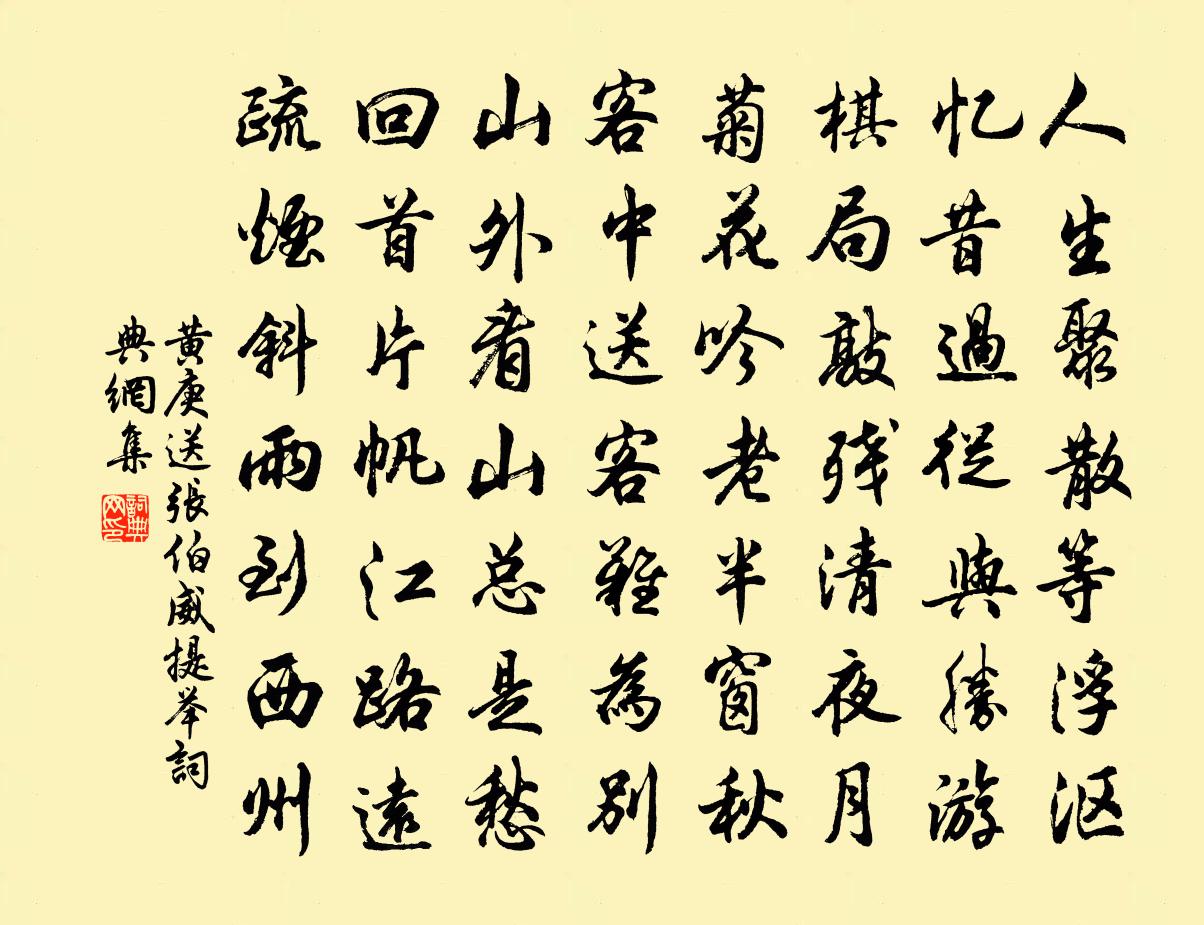 人生聚散等浮沤
忆昔過從與勝游
棋局敲残清夜月
菊花吟老半窗秋
客中送客難為别
山外看山总是愁
回首片帆江路遠
疏煙斜雨到西州
黄庚送張伯威提举詞
典網集
詞典
网印